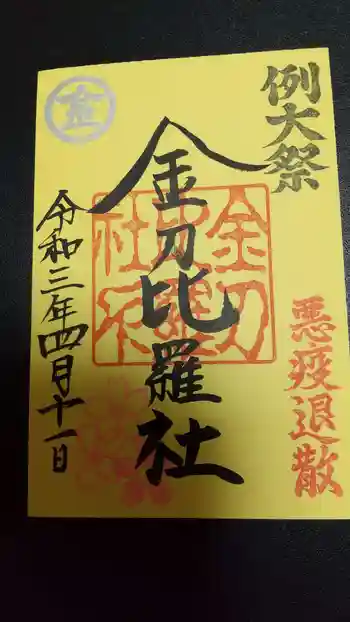 例大祭
悪疫退散
金刀比羅社
令和三年四月十一日
金
金刀
比羅
社